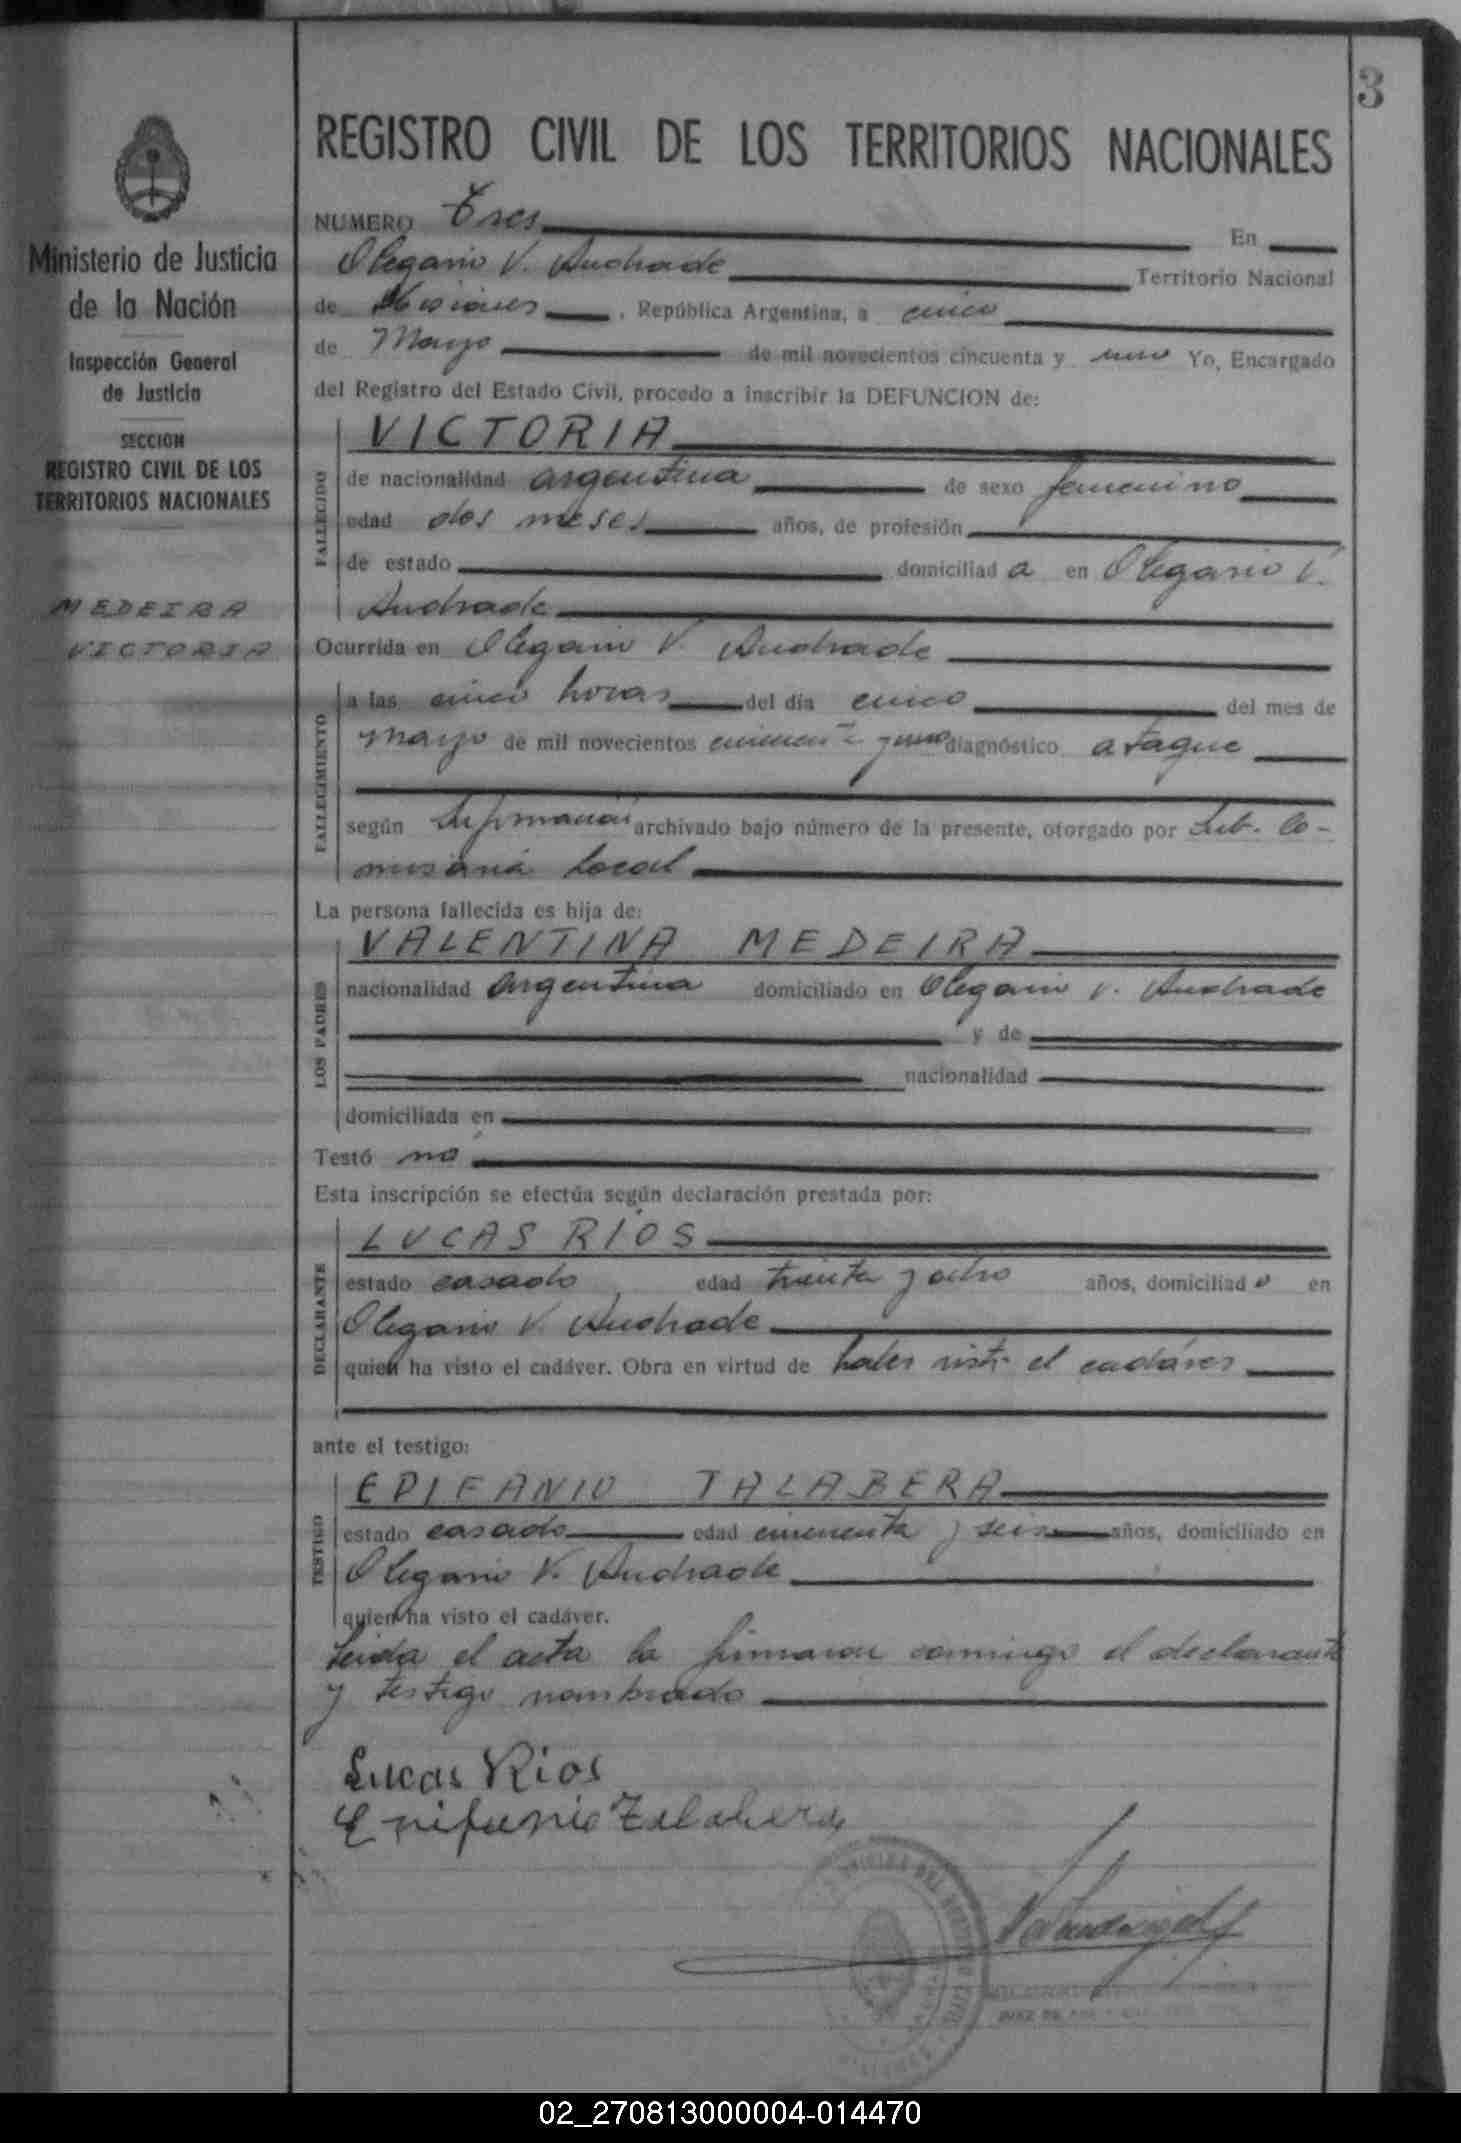 3
REGISTRO CIVIL DE LOS TERRITORIOS NACIONALES
Ministerio de Justicia
de la Nación
Inspección General
de Justicia
SECCION
REGISTRO CIVIL DE LOS
TERRITORIOS NACIONALES
MEDEIRA
VICTORIA
NUMERO Tres En
Olegario V. Andrade Territorio Nacional
de Misiones, República Argentina, a cinco
de Mayo de mil novecientos cincuenta y uno Yo, Encargado
del Registro del Estado Civil, procedo a inscribir la DEFUNCION de:
FALLECIDO
VICTORIA
de nacionalidad argentina de sexo femenino
edad dos meses años, de profesión
de estado domiciliad a en Olegario V.
Andrade
Ocurrida en Olegario V. Andrade
FALLECIMIENTO
a las cinco horas del día cinco del mes de
mayo de mil novecientos cincuenta y uno diagnóstico ataque
según Información archivado bajo número de la presente, otorgado por Sub. Co-
misaria local
La persona fallecida es hija de:
LOS PADRES
VALENTINA MEDEIRA
nacionalidad argentina domiciliado en Olegario V. Andrade
y de
nacionalidad
domiciliada en
Testó no
Esta inscripción se efectúa según declaración prestada por:
DECLARANTE
LUCAS RÍOS
estado casado edad treinta y ocho años, domiciliad o en
Olegario V. Andrade
quien ha visto el cadáver. Obra en virtud de haber visto el cadáver
ante el testigo:
TESTIGO
EPIFANIO TALABERA
estado casado edad cincuenta y seis años, domiciliado en
Olegario V. Andrade
quien ha visto el cadáver.
Leida el acta la firmaron conmigo el declarante
y testigo nombrado
Lucas Rios
Epifanio Talabera
02_270813000004-014470